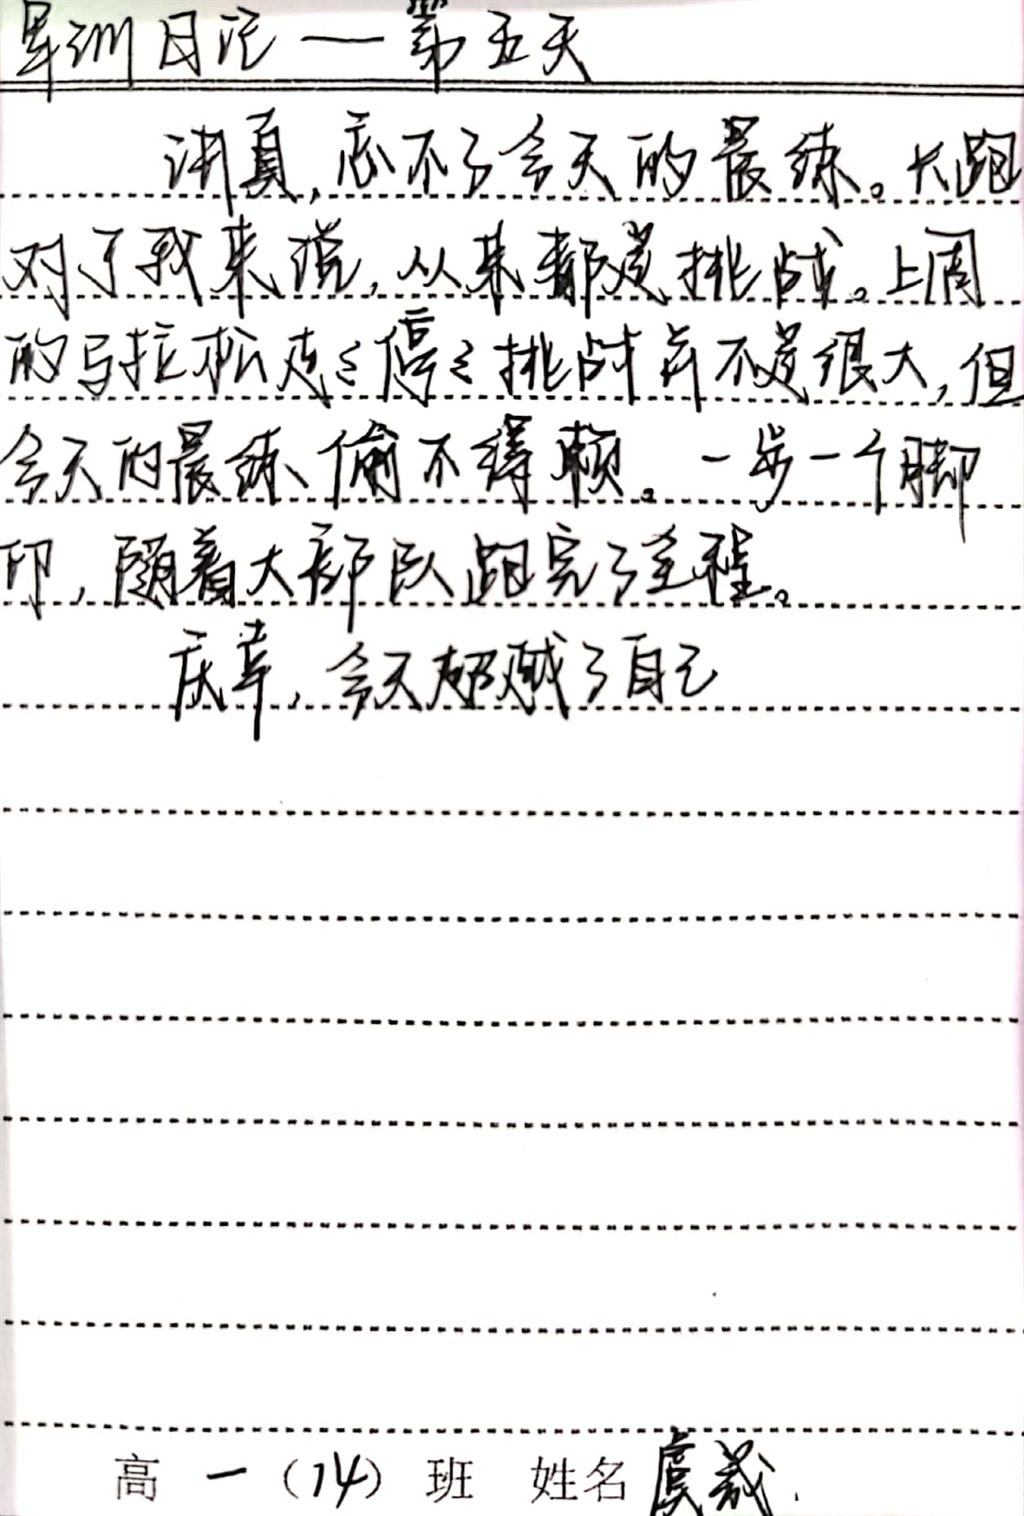 军训日记——第五天
讲真,忘不了今天的晨练。长跑
对于我来说,从来都是挑战。上周
的马拉松走走停停挑战并不是很大,但
今天的晨练、偷不得懒。一步一个脚
印,随着大部队跑完了全程。
庆幸,今天超越了自己
高一(14)班 姓名虞